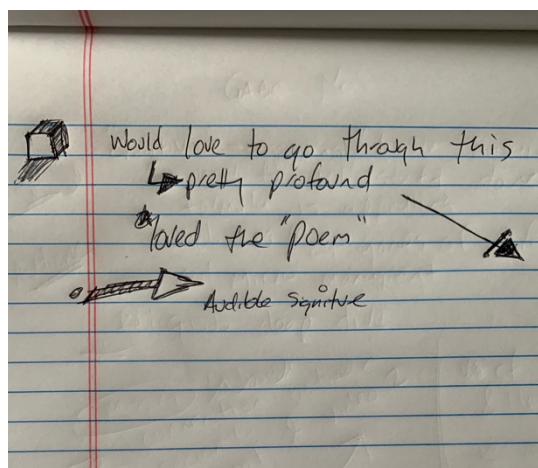 Would love to go through this
pretty profound
loved the "poem"
Audible Signiture